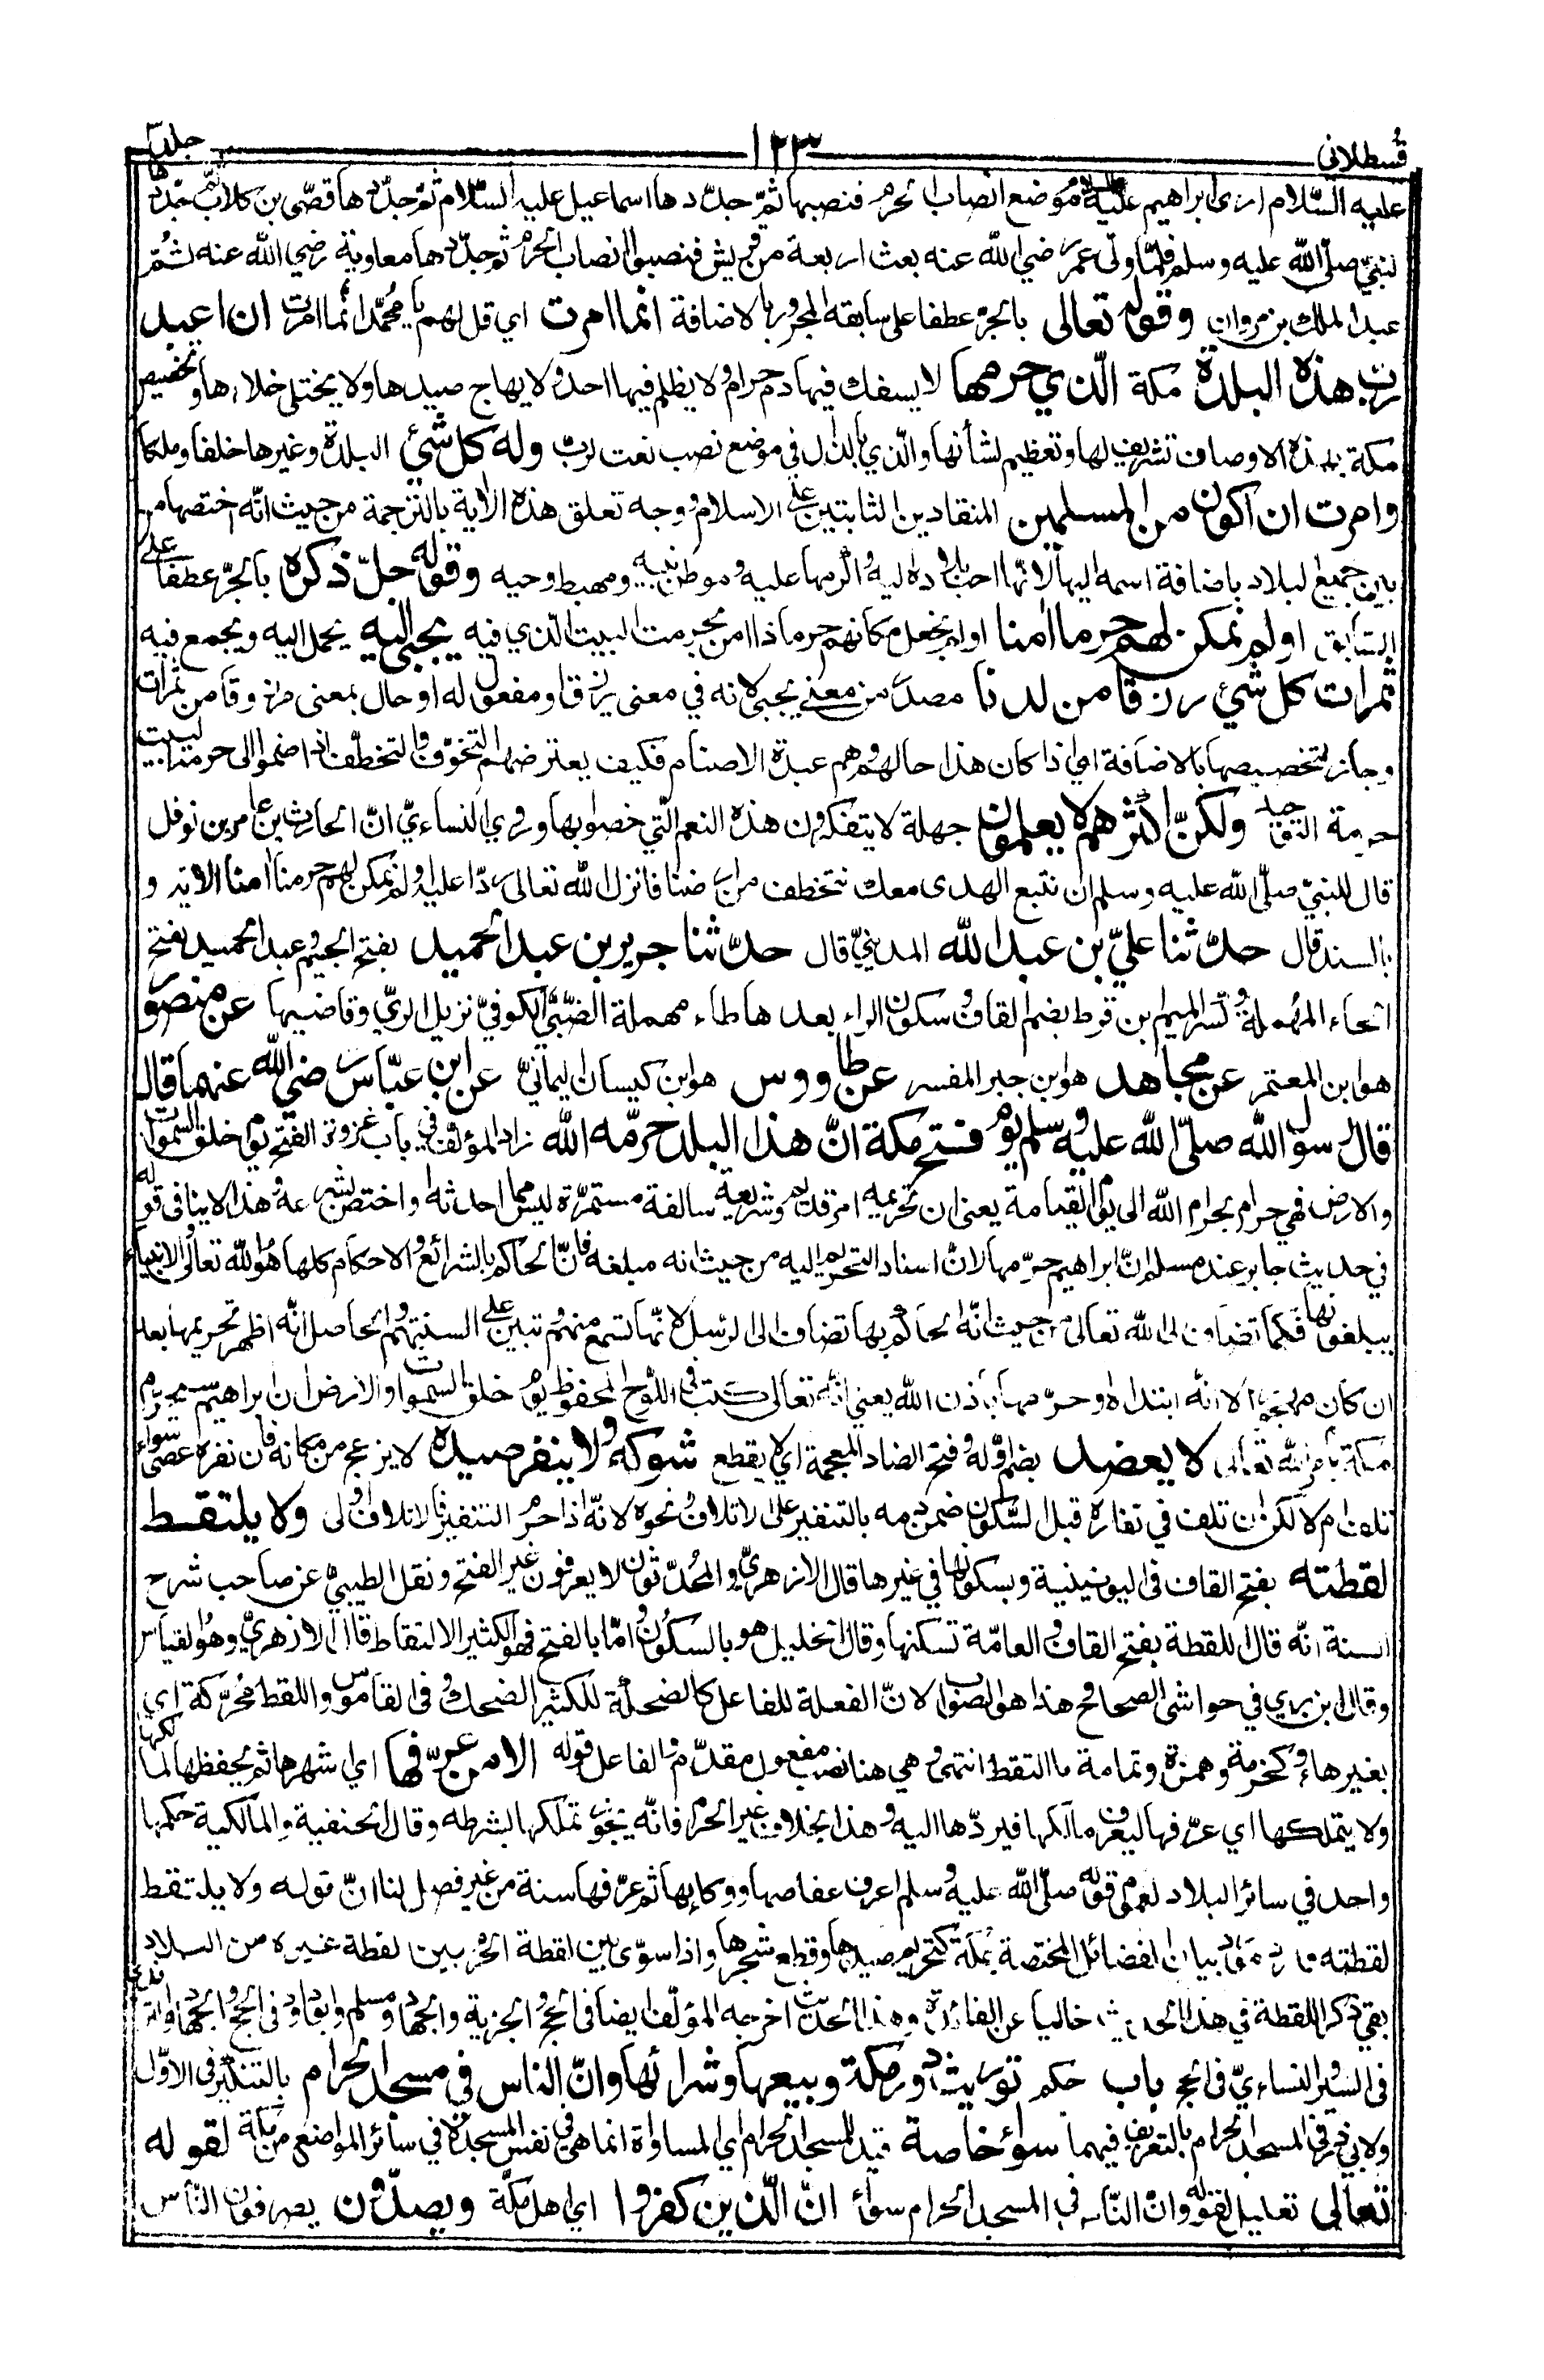 قسطلاني ١٢٣ جلد
عليه السّلام ارى ابراهيم عليه السلام موضع انصاب الحرم فنصبها ثمّ جدّدها اسماعيل عليه السّلام ثم جدّدها قصّى بن كلاب ثم جدّدها
لنبيّ صلّى الله عليه وسلم فلمّا ولّى عمر رضي الله عنه بعث اربعة من قريش فنصبوا انصاب الحرم ثم جدّدها معاوية رضي الله عنه ثمّ
عبد الملك بن مروان وقوله تعالى بالجرّ عطفا على سابقه المجرور بالاضافة انما امرت اي قل لهم يا محمّد انّما امرت ان اعبد
ربّ هذه البلدة مكة الّذي حرمها لا يسفك فيها دم حرام ولا يظلم فيها احد ولا يهاج صيدها ولا يختلى خلاءها وتخصيص
مكة بهذه الاوصاف تشريف لها وتعظيم لشأنها والّذي بالذال في موضع نصب نعت لربّ وله كل شئ البلدة وغيرها خلقا وملكا
وامرت ان اكون من المسلمين المنقادين الثابتين على الاسلام ووجه تعلق هذه الاٰية بالترجمة من حيث انّه اختصها من
بين جميع البلاد باضافة اسمه اليها لانّها احب بلاده اليه واكرمها عليه وموطن نبيه ومهبط وحيه وقوله جلّ ذكره بالجرّ عطفا على
السّابق اولم نمكن لهم حرما اٰمنا اولم نجعل مكانهم حرما ذا امن بحرمت البيت الّذي فيه يجبى اليه يحمل اليه ويجمع فيه
ثمرات كل شئ رزقا من لدنا مصدر من معنى يجبى لانه في معنى يرزق او مفعول له او حال بمعنى مرزوقا من ثمرات
وجاز لتخصيصها بالاضافة اي اذا كان هذا حالهم وهم عبدة الاصنام فكيف يعترضهم التخوّف والتخطّف اذا ضموا الى حرمة البيت
حرمة التوحيد ولكنّ اكثرهم لا يعلمون جهلة لا يتفكرون هذه النعم الّتي خصوا بها وروى النساءيّ انّ الحارث بن عامر بن نوفل
قال للنبيّ صلّى الله عليه وسلم ان نتبع الهدى معك نتخطف من ارضنا فانزل الله تعالى ردّا عليه اولم نمكن لهم حرما اٰمنا الاية و
بالسند قال حدّثنا عليّ بن عبد الله المدينيّ قال حدّثنا جرير بن عبد الحميد بفتح الجيم وعبد الحميد بفتح
الحاء المهملة وكسر الميم بن قرط بضم القاف وسكون الراء بعدها طاء مهملة الضّبّيّ الكوفيّ نزيل الريّ وقاضيها عن منصور
هو ابن المعتمر عن مجاهد هو ابن جبر المفسر عن طاووس هو ابن كيسان اليمانيّ عن ابن عبّاس رضي الله عنهما قال
قال رسول الله صلّى الله عليه وسلم يوم فتح مكة انّ هذا البلد حرّمه الله زاد المؤلف في باب غزوة الفتح يوم خلق السموات
والارض فهي حرام بحرام الله الى يوم القيامة يعنى ان تحريمه امر قديم وشريعة سالفة مستمرّة ليس مما احدثه او اختص بشرعه وهذا لا ينافى قوله
في حديث جابر عند مسلم انّ ابراهيم حرّمها لانّ اسناد التحريم اليه من حيث انه مبلغه فانّ الحاكم بالشرائع والاحكام كلها هو الله تعالى والانبياء
يبلغونها فكما تضاف الى الله تعالى من حيث انّه الحاكم بها تضاف الى الرسل لانّها تسمع منهم وتبين على السنتهم والحاصل انّه اظهر تحريمها بعد
ان كان مهجورا لا انّه ابتداه وحرّمها باذن الله يعني انّه تعالى كتب في اللّوح المحفوظ يوم خلق السموات والارض ان ابراهيم سيحرّم
مكة بامر الله تعالى لا يعضد بضم اوّله وفتح الضاد المعجمة اي لا يقطع شوكه ولا ينفر صيده لا يزعج من مكانه فان نفره عصى سواء
تلف ام لا لكن ان تلف في نفاره قبل السّكون ضمن دمه بالتنفير على الاتلاف ونحوه لانّه اذا حرم التنفير فالاتلاف اولى ولا يلتقط
لقطته بفتح القاف فى اليونينية وبسكونها في غيرها قال الازهريّ والمحدّثون لا يعرفون غير الفتح ونقل الطيبيّ عن صاحب شرح
السنة انّه قال اللقطة بفتح القاف والعامّة تسكنها وقال الخليل هو بالسكون وامّا بالفتح فهو الكثير الالتقاط قال الازهريّ وهو القياس
وقال ابن بريّ في حواشى الصحاح هذا هو الصواب لانّ الفعلة للفاعل كالضحكة للكثير الضحك وفى القاموس واللقط محرّكة اي
بغير هاء وكحزمة وهمزة وثمامة ما التقط انتهى وهي هنا نصب مفعول مقدّم والفاعل قوله الا من عرّفها اي شهرها ثم يحفظها لمالكها
ولا يتملكها اي عرّفها ليعرف مالكها فيردّها اليه وهذا بخلاف غير الحرم فانّه يجوز تملكها بشرطه وقال الحنفية والمالكية حكمها
واحد في سائر البلاد لعموم قوله صلّى الله عليه وسلم اعرف عفاصها ووكاءها ثم عرّفها سنة من غير فصل لنا انّ قوله ولا يلتقط
لقطته ورد مورد بيان الفضائل المختصة بمكة كتحريم صيدها وقطع شجرها واذا سوّى بين لقطة الحرم وبين لقطة غيره من البلاد
بقي ذكر اللقطة في هذا الحديث خاليا عن الفائدة وهذا الحديث اخرجه المؤلّف ايضا فى الحج والجزية والجهاد ومسلم وابو داود فى الحج والجهاد والترمذي
فى السير والنساءيّ فى الحج باب حكم توريث دور مكة وبيعها وشرائها وانّ الناس في مسجد الحرام بالتنكير فى الاوّل
ولابي ذر فى المسجد الحرام بالتعريف فيهما سواء خاصة قيد للمسجد الحرام اي المساواة انما هي فى نفس المسجد لا في سائر المواضع من مكة لقوله
تعالى تعليل لقوله وانّ النّاس في المسجد الحرام سواء انّ الّذين كفروا اي اهل مكّة ويصدّون يصرفون النّاس